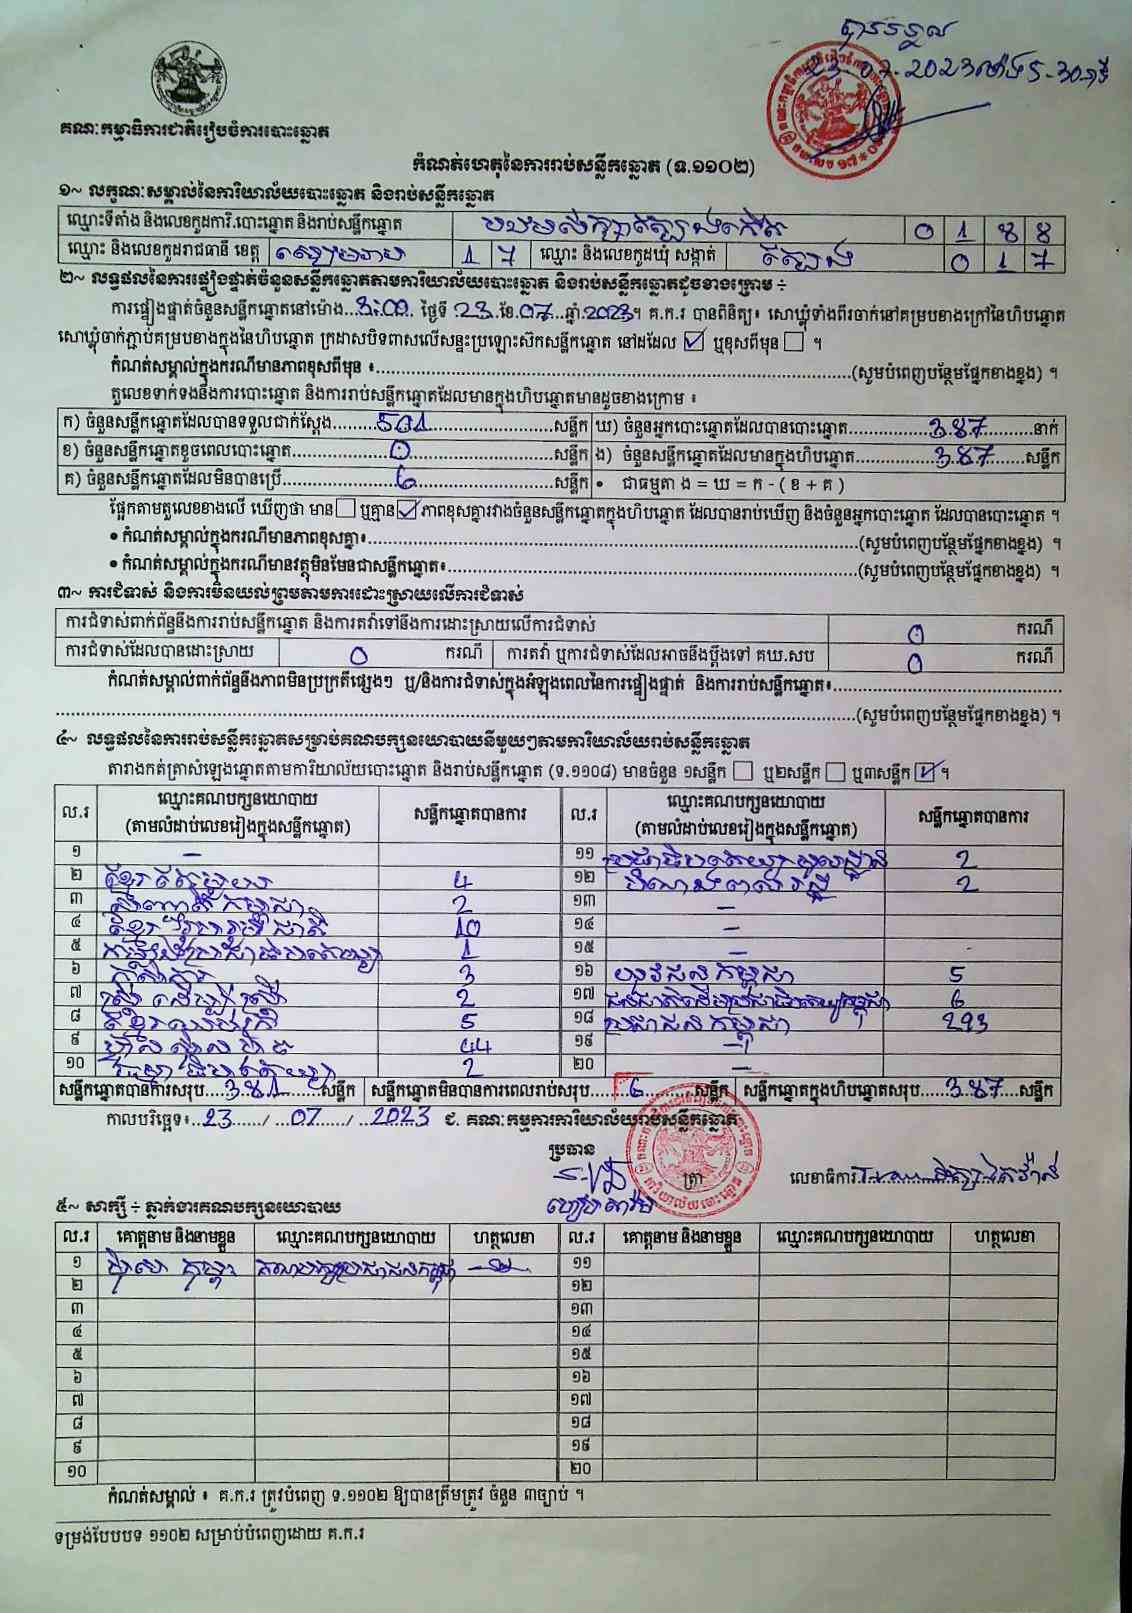 បានទទួល
23-07-2023 ម៉ោង 5-30 នាទី
គណៈកម្មាធិការជាតិរៀបចំការបោះឆ្នោត
កំណត់ហេតុនៃការរាប់សន្លឹកឆ្នោត (ទ.១១០២)
១~ លក្ខណៈសម្គាល់នៃការិយាល័យបោះឆ្នោត និងរាប់សន្លឹកឆ្នោត
ឈ្មោះទីតាំង និងលេខកូដការិ.បោះឆ្នោត និងរាប់សន្លឹកឆ្នោត 0 1 8 8
ឈ្មោះ និងលេខកូដរាជធានី ខេត្ត សៀមរាប 1 7 ឈ្មោះ និងលេខកូដឃុំ សង្កាត់ 0 1 7
២~ លទ្ធផលនៃការផ្ទៀងផ្ទាត់ចំនួនសន្លឹកឆ្នោតតាមការិយាល័យបោះឆ្នោត និងរាប់សន្លឹកឆ្នោតដូចខាងក្រោម ÷
ការផ្ទៀងផ្ទាត់ចំនួនសន្លឹកឆ្នោតនៅម៉ោង...3:00.. ថ្ងៃទី .23. ខែ.07...ឆ្នាំ.2023។ គ.ក.រ បានពិនិត្យ៖ សោឃ្លុំទាំងពីរចាក់នៅគម្របខាងក្រៅនៃហិបឆ្នោត
សោឃ្លុំចាក់ភ្ជាប់គម្របខាងក្នុងនៃហិបឆ្នោត ក្រដាសបិទពាសលើសន្ទះប្រឡោះស៊កសន្លឹកឆ្នោត នៅដដែល ☑ ឬខុសពីមុន ☐ ។
កំណត់សម្គាល់ក្នុងករណីមានភាពខុសពីមុន ៖...(សូមបំពេញបន្ថែមផ្នែកខាងខ្នង) ។
តួលេខទាក់ទងនឹងការបោះឆ្នោត និងការរាប់សន្លឹកឆ្នោតដែលមានក្នុងហិបឆ្នោតមានដូចខាងក្រោម ៖
ក) ចំនួនសន្លឹកឆ្នោតដែលបានទទួលជាក់ស្តែង......501......សន្លឹក ឃ) ចំនួនអ្នកបោះឆ្នោតដែលបានបោះឆ្នោត......387......នាក់
ខ) ចំនួនសន្លឹកឆ្នោតខូចពេលបោះឆ្នោត......0......សន្លឹក ង) ចំនួនសន្លឹកឆ្នោតដែលមានក្នុងហិបឆ្នោត......387......សន្លឹក
គ) ចំនួនសន្លឹកឆ្នោតដែលមិនបានប្រើ......6......សន្លឹក • ជាធម្មតា ង = ឃ = ក - ( ខ + គ )
ផ្អែកតាមតួលេខខាងលើ ឃើញថា មាន ☐ ឬគ្មាន ☑ ភាពខុសគ្នារវាងចំនួនសន្លឹកឆ្នោតក្នុងហិបឆ្នោត ដែលបានរាប់ឃើញ និងចំនួនអ្នកបោះឆ្នោត ដែលបានបោះឆ្នោត ។
• កំណត់សម្គាល់ក្នុងករណីមានភាពខុសគ្នា៖...(សូមបំពេញបន្ថែមផ្នែកខាងខ្នង) ។
• កំណត់សម្គាល់ក្នុងករណីមានវត្ថុមិនមែនជាសន្លឹកឆ្នោត៖...(សូមបំពេញបន្ថែមផ្នែកខាងខ្នង) ។
៣~ ការជំទាស់ និងការមិនយល់ព្រមតាមការដោះស្រាយលើការជំទាស់
ការជំទាស់ពាក់ព័ន្ធនឹងការរាប់សន្លឹកឆ្នោត និងការតវ៉ាទៅនឹងការដោះស្រាយលើការជំទាស់ 0 ករណី
ការជំទាស់ដែលបានដោះស្រាយ 0 ករណី ការតវ៉ា ឬការជំទាស់ដែលអាចនឹងប្តឹងទៅ គឃ.សប 0 ករណី
កំណត់សម្គាល់ពាក់ព័ន្ធនឹងភាពមិនប្រក្រតីផ្សេងៗ ឬ/និងការជំទាស់ក្នុងអំឡុងពេលនៃការផ្ទៀងផ្ទាត់ និងការរាប់សន្លឹកឆ្នោត៖...
...(សូមបំពេញបន្ថែមផ្នែកខាងខ្នង) ។
៤~ លទ្ធផលនៃការរាប់សន្លឹកឆ្នោតសម្រាប់គណបក្សនយោបាយនីមួយៗតាមការិយាល័យរាប់សន្លឹកឆ្នោត
តារាងកត់ត្រាសំឡេងឆ្នោតតាមការិយាល័យបោះឆ្នោត និងរាប់សន្លឹកឆ្នោត (ទ.១១០៨) មានចំនួន ១សន្លឹក ☐ ឬ២សន្លឹក ☐ ឬ៣សន្លឹក ☑ ។
ល.រ ឈ្មោះគណបក្សនយោបាយ (តាមលំដាប់លេខរៀងក្នុងសន្លឹកឆ្នោត) សន្លឹកឆ្នោតបានការ ល.រ ឈ្មោះគណបក្សនយោបាយ (តាមលំដាប់លេខរៀងក្នុងសន្លឹកឆ្នោត) សន្លឹកឆ្នោតបានការ
១ — ១១ ប្រជាធិបតេយ្យមូលដ្ឋាន 2
២ ខ្មែរតែមួយ 4 ១២ 2
៣ 2 ១៣ —
៤ 10 ១៤ —
៥ 1 ១៥ —
៦ កសិករ 3 ១៦ យុវជនកម្ពុជា 5
៧ ស្ត្រីដើម្បីស្ត្រី 2 ១៧ ជនជាតិដើមប្រជាធិបតេយ្យកម្ពុជា 6
៨ ខ្មែររួបរួមជាតិ 5 ១៨ ប្រជាជនកម្ពុជា 293
៩ ហ៊្វុនស៊ិនប៉ិច 44 ១៩ —
១០ 2 ២០ —
សន្លឹកឆ្នោតបានការសរុប....381......សន្លឹក សន្លឹកឆ្នោតមិនបានការពេលរាប់សរុប....6......សន្លឹក សន្លឹកឆ្នោតក្នុងហិបឆ្នោតសរុប....387....សន្លឹក
កាលបរិច្ឆេទ៖..23....../...07....../...2023 ជ. គណៈកម្មការការិយាល័យរាប់សន្លឹកឆ្នោត
ប្រធាន
ត្រា
លេខាធិការ
៥~ សាក្សី ÷ ភ្នាក់ងារគណបក្សនយោបាយ
ល.រ គោត្តនាម និងនាមខ្លួន ឈ្មោះគណបក្សនយោបាយ ហត្ថលេខា ល.រ គោត្តនាម និងនាមខ្លួន ឈ្មោះគណបក្សនយោបាយ ហត្ថលេខា
១ គណបក្សប្រជាជនកម្ពុជា ១១
២ ១២
៣ ១៣
៤ ១៤
៥ ១៥
៦ ១៦
៧ ១៧
៨ ១៨
៩ ១៩
១០ ២០
កំណត់សម្គាល់ ៖ គ.ក.រ ត្រូវបំពេញ ទ.១១០២ ឱ្យបានត្រឹមត្រូវ ចំនួន ៣ច្បាប់ ។
ទម្រង់បែបបទ ១១០២ សម្រាប់បំពេញដោយ គ.ក.រ